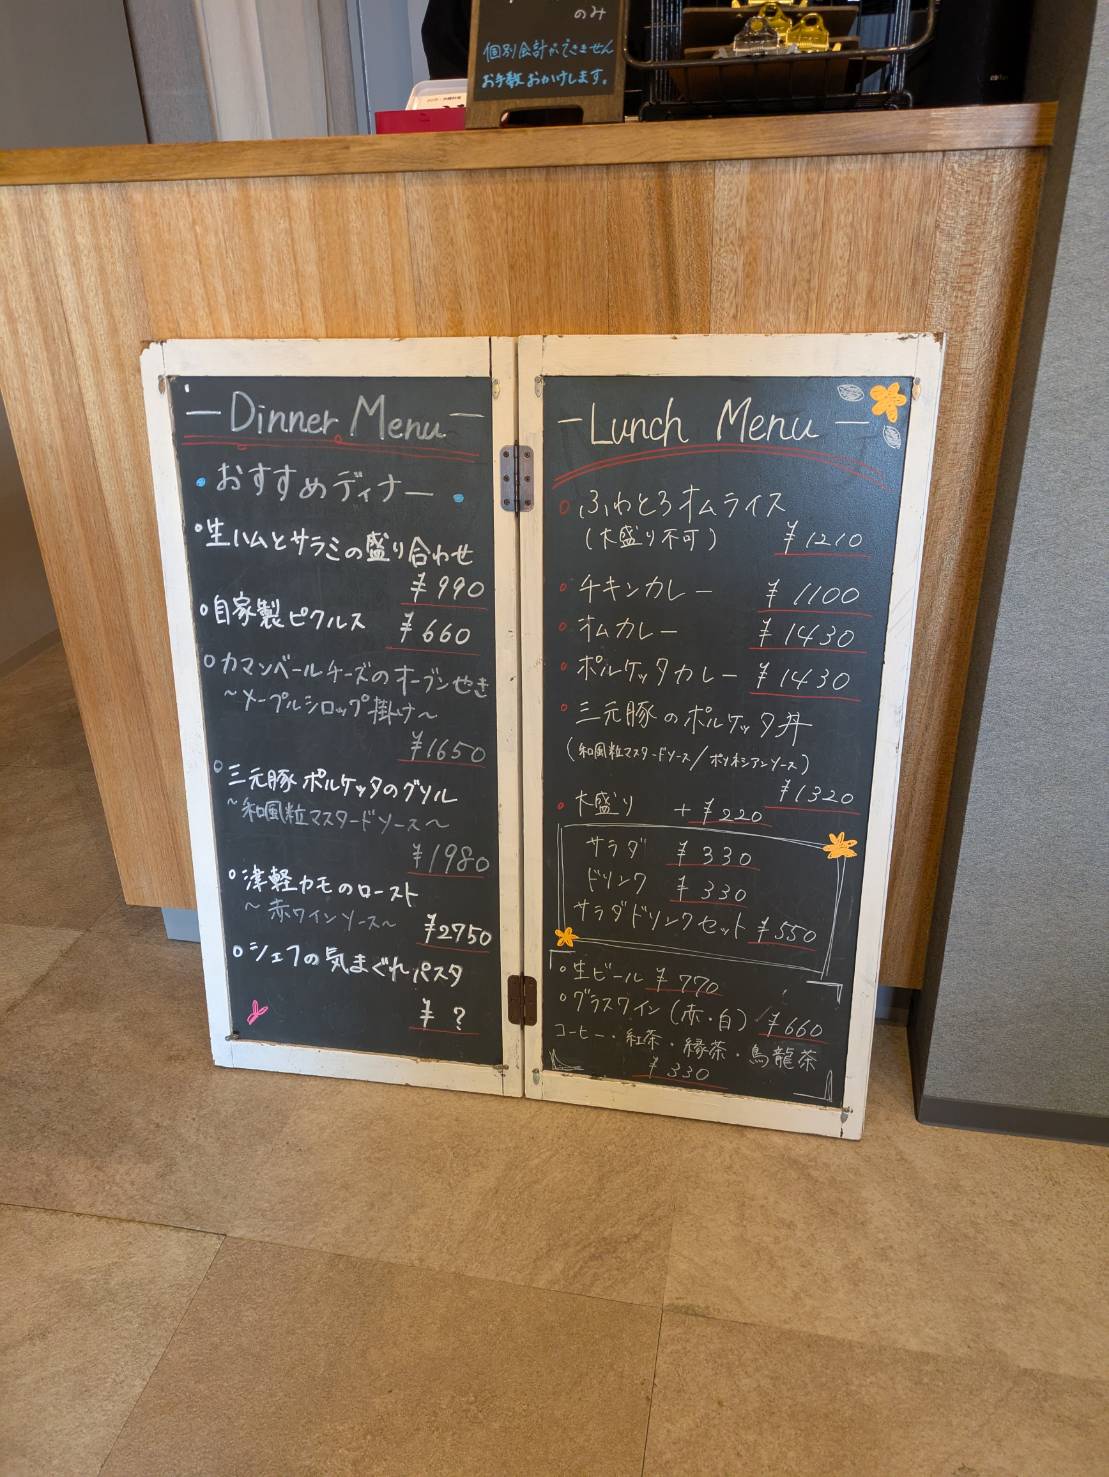 のみ
個別会計ができません
お手数おかけします。
- Dinner Menu -
・おすすめディナー・
○生ハムとサラミの盛り合わせ
¥990
○自家製ピクルス ¥660
○カマンベールチーズのオーブンやき
～メープルシロップ掛け～
¥1650
○三元豚ポルケッタのグリル
～和風粒マスタードソース～
¥1980
○津軽カモのロースト
～赤ワインソース～ ¥2750
○シェフの気まぐれパスタ
¥ ?
- Lunch Menu -
○ふわとろオムライス
(大盛り不可) ¥1210
・チキンカレー ¥1100
・オムカレー ¥1430
・ポルケッタカレー ¥1430
・三元豚のポルケッタ丼
(和風粒マスタードソース/ポリネシアンソース)
¥1320
・大盛り +¥220
サラダ ¥330
ドリンク ¥330
サラダドリンクセット ¥550
○生ビール ¥770
○グラスワイン(赤・白) ¥660
コーヒー・紅茶・緑茶・烏龍茶
¥330